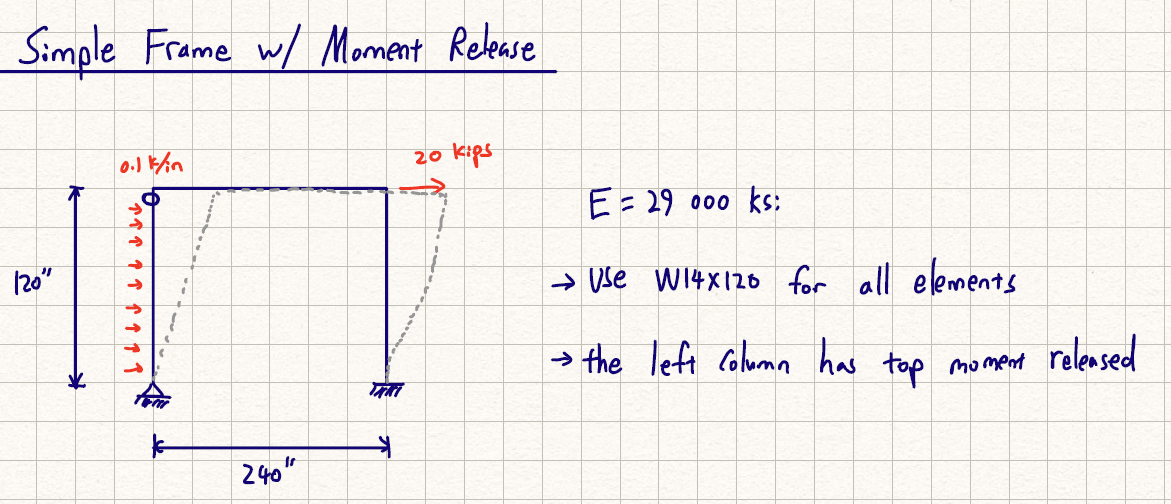 Simple Frame w/ Moment Release
0.1 k/in
20 kips
120"
240"
E = 29 000 ksi
→ Use W14x120 for all elements
→ the left column has top moment released